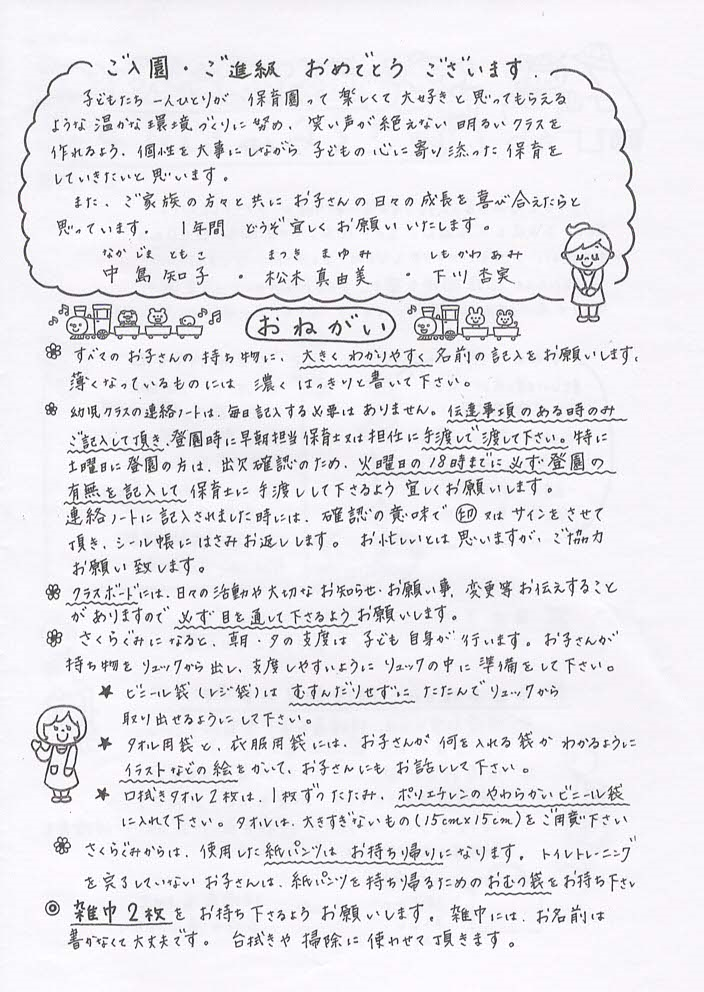 ご入園・ご進級 おめでとう ございます.
子どもたち 一人ひとりが 保育園って 楽しくて 大好きと 思ってもらえる
ような 温かな 環境 づくりに 努め、笑い声が 絶えない 明るい クラスを
作れるよう、個性を 大事にしながら 子どもの 心に 寄り添った 保育を
していきたいと 思います。
また、ご家族の 方々と 共に お子さんの 日々の 成長を 喜び 合えたらと
思っています。 1年間 どうぞ 宜しく お願い いたします。
なかじま ともこ まつき まゆみ しもかわ あみ
中島 知子 ・ 松木 真由美 ・ 下川 杏実
おねがい
すべての お子さんの 持ち物に、大きく わかりやすく 名前の 記入を お願いします。
薄くなっているものには 濃く はっきりと 書いて下さい。
幼児クラスの 連絡ノートは、毎日 記入する 必要は ありません。伝達事項の ある時のみ
ご記入して 頂き、登園時に 早朝担当 保育士又は 担任に 手渡しで 渡して下さい。特に
土曜日に 登園の 方は、出欠確認のため、火曜日の 18時までに 必ず 登園の
有無を 記入して 保育士に 手渡しして下さるよう 宜しくお願いします。
連絡ノートに 記入されました 時には、確認の 意味で ㊞ 又は サインを させて
頂き、シール帳に はさみ お返しします。 お忙しいとは 思いますが、ご協力
お願い 致します。
クラスボードには、日々の 活動や 大切な お知らせ・お願い事、変更等 お伝えすること
が ありますので 必ず 目を 通して 下さるよう お願いします。
さくらぐみになると、朝・夕の 支度は 子ども 自身が 行います。 お子さんが
持ち物を リュックから 出し、支度しやすいように リュックの 中に 準備をして 下さい。
★ ビニール袋 (レジ袋)は むすんだりせずに たたんで リュックから
取り出せるようにして下さい。
★ タオル用袋と、衣服用袋には、お子さんが 何を入れる 袋か わかるように
イラストなどの 絵を かいて、お子さんにも お話しして下さい。
★ 口拭きタオル 2枚は、1枚ずつ たたみ、ポリエチレンの やわらかい ビニール袋
に入れて下さい。タオルは、大きすぎないもの (15cm×15cm) を ご用意下さい
さくらぐみからは、使用した 紙パンツは お持ち帰りに なります。トイレトレーニング
を 完了していない お子さんは、紙パンツを 持ち帰るための おむつ袋を お持ち下さい
◎ 雑巾 2枚を お持ち下さるよう お願いします。 雑巾には、お名前は
書かなくて 大丈夫です。 台拭きや 掃除に 使わせて 頂きます。